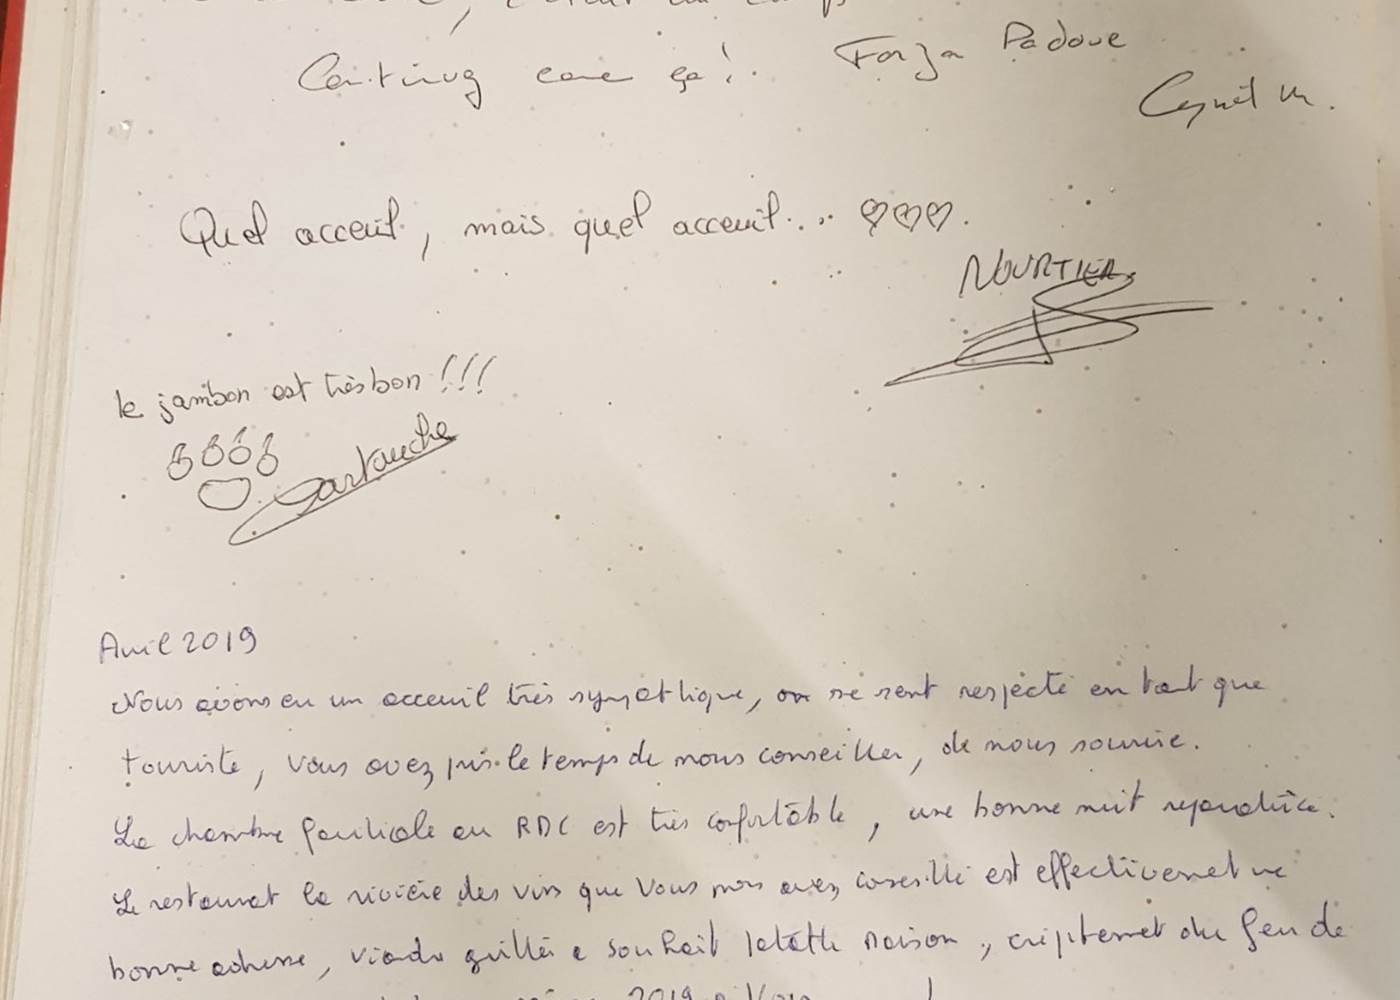 Continuez comme ça ! Forza Padoue
Quel acceuil, mais quel acceuil... ♡♡♡.
NOURTIER
le jambon est très bon !!!
Cartouche
Avril 2019
Nous avons eu un acceuil très sympathique, on se sent respecté en tant que
touriste, vous avez pris le temps de nous conseiller, de nous sourire.
La chambre familiale au RDC est très confortable, une bonne nuit réparatrice.
Le restaurant la rivière des vins que vous nous avez conseillé est effectivement une
bonne adresse, viande grillée à souhait maison, crépitement du feu de
2019